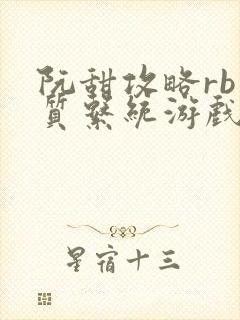 阮甜攻略rb
質繫統游戲
星宿十三